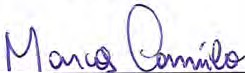 Marcos Camilo